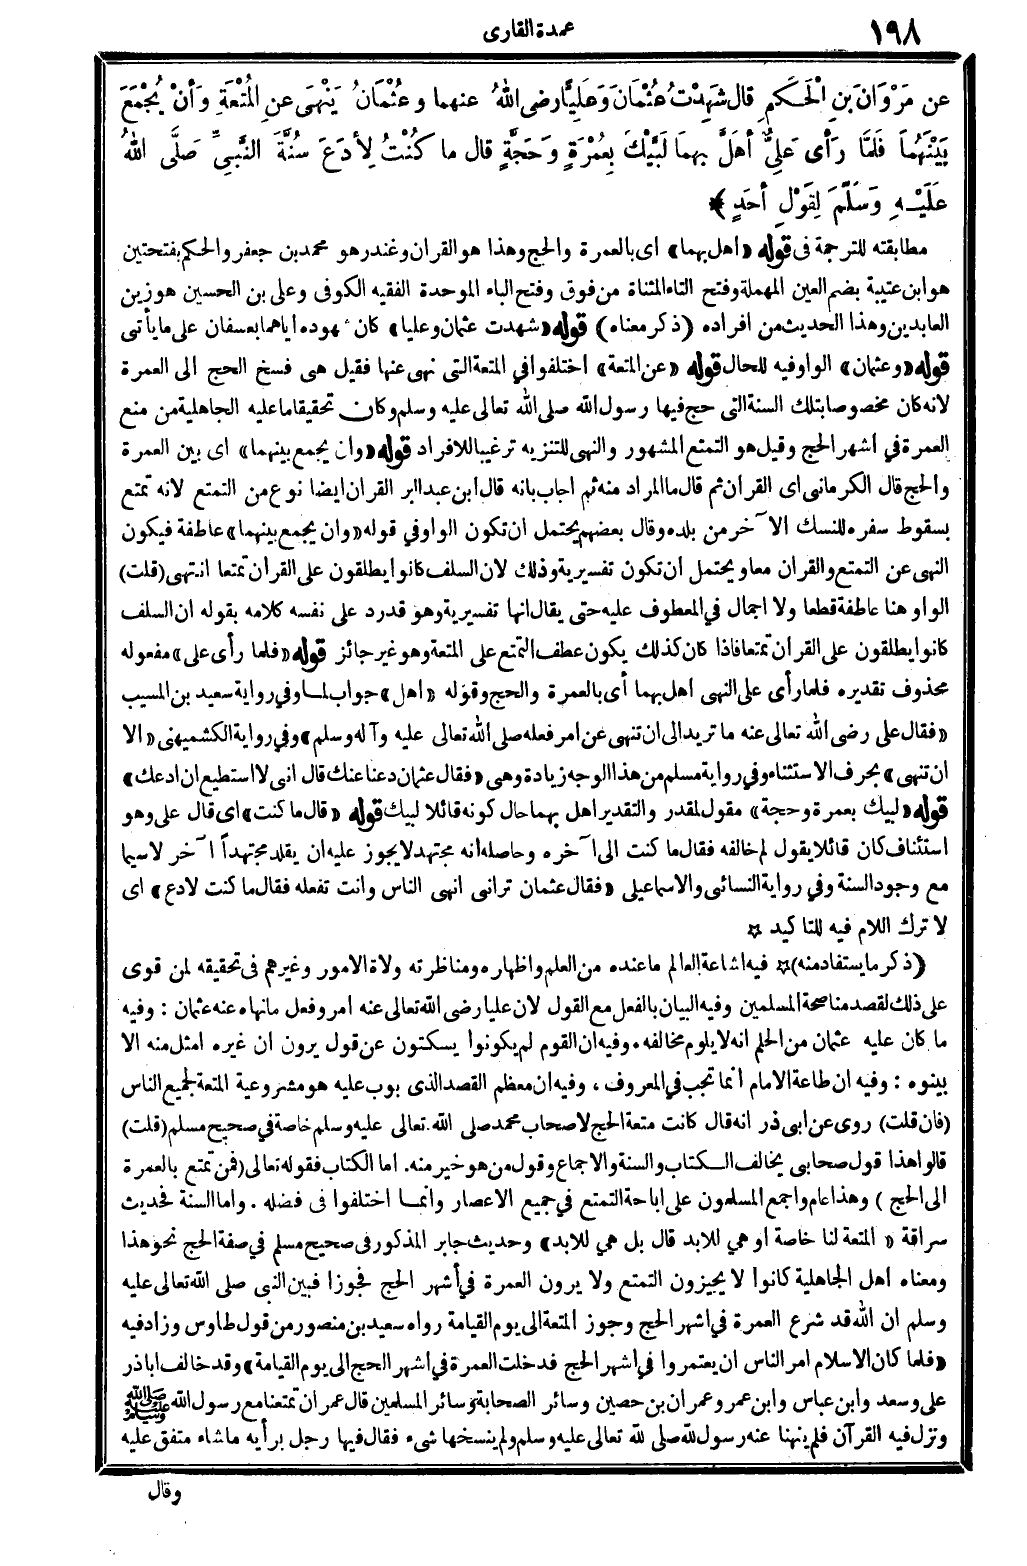 ١٩٨
عمدة القارى
عن مَرْوَانَ بنِ الْحَكَمِ قال شَهِدْتُ عُثْمَانَ وَعَلِيًّا رضى اللهُ عنهما وعُثْمَانُ يَنْهَى عنِ المُتْعَةِ وأنْ يُجْمَعَ
بَيْنَهُمَا فَلَمَّا رَأى عَلِيٌّ أهَلَّ بِهِمَا لَبَّيْكَ بِعُمْرَةٍ وَحَجَّةٍ قال ما كُنْتُ لِأدَعَ سُنَّةَ النَّبِيِّ صَلَّى اللهُ
عَلَيْهِ وَسَلَّمَ لِقَوْلِ أحَدٍ ﴾
مطابقته للترجمة فى قوله «أهل بهما» اى بالعمرة والحج وهذا هو القران وغندر هو محمد بن جعفر والحكم بفتحتين
هو ابن عتيبة بضم العين المهملة وفتح التاء المثناة من فوق وفتح الباء الموحدة الفقيه الكوفى وعلى بن الحسين هو زين
العابدين وهذا الحديث من افراده (ذكر معناه) قوله «شهدت عثمان وعليا» كان شهوده اياهما بعسفان على ما يأتى
قوله «وعثمان» الواو فيه للحال قوله «عن المتعة» اختلفوا في المتعة التى نهى عنها فقيل هى فسخ الحج الى العمرة
لانه كان مخصوصا بتلك السنة التى حج فيها رسول الله صلى الله تعالى عليه وسلم وكان تحقيقا ما عليه الجاهلية من منع
العمرة في أشهر الحج وقيل هو التمتع المشهور والنهى للتنزيه ترغيبا للافراد قوله «وان يجمع بينهما» اى بين العمرة
والحج قال الكرمانى اى القران ثم قال ما المراد منه ثم اجاب بانه قال ابن عبد البر القران ايضا نوع من التمتع لانه تمتع
بسقوط سفره للنسك الآخر من بلده وقال بعضهم يحتمل ان تكون الواو في قوله «وان يجمع بينهما» عاطفة فيكون
النهى عن التمتع والقران معا ويحتمل أن تكون تفسيرية وذلك لان السلف كانوا يطلقون على القران تمتعا انتهى (قلت)
الواو هنا عاطفة قطعا ولا اجمال في المعطوف عليه حتى يقال انها تفسيرية وهو قد رد على نفسه كلامه بقوله ان السلف
كانوا يطلقون على القران تمتعا فاذا كان كذلك يكون عطف التمتع على المتعة وهو غير جائز قوله «فلما رأى على» مفعوله
محذوف تقديره فلما رأى على النهى اهل بهما أى بالعمرة والحج وقوله «اهل» جواب لما وفي رواية سعيد بن المسيب
«فقال على رضى الله تعالى عنه ما تريد الى ان تنهى عن امر فعله صلى الله تعالى عليه وآله وسلم» وفي رواية الكشميهنى «الا
ان تنهى» بحرف الاستثناء وفي رواية مسلم من هذا الوجه زيادة وهى «فقال عثمان دعنا عنك قال انى لا استطيع ان ادعك»
قوله «لبيك بعمرة وحجة» مقول لمقدر والتقدير اهل بهما حال كونه قائلا لبيك قوله «قال ما كنت» اى قال على وهو
استئناف كان قائلا يقول لم خالفه فقال ما كنت الى آخره وحاصله انه مجتهد لا يجوز عليه ان يقلد مجتهداً آخر لا سيما
مع وجود السنة وفي رواية النسائى والاسماعيلى «فقال عثمان ترانى انهى الناس وانت تفعله فقال ما كنت لادع» اى
لا ترك اللام فيه للتاكيد ☆
(ذكر ما يستفاد منه) ☆ فيه اشاعة العالم ما عنده من العلم واظهاره ومناظرته ولاة الامور وغيرهم في تحقيقه لمن قوى
على ذلك لقصد مناصحة المسلمين وفيه البيان بالفعل مع القول لان عليا رضى الله تعالى عنه امر وفعل ما نهاه عنه عثمان : وفيه
ما كان عليه عثمان من الحلم انه لا يلوم مخالفه . وفيه ان القوم لم يكونوا يسكتون عن قول يرون ان غيره امثل منه الا
بينوه : وفيه ان طاعة الامام انما تجب في المعروف ، وفيه ان معظم القصد الذى بوب عليه هو مشروعية المتعة لجميع الناس
(فان قلت) روى عن ابى ذر انه قال كانت متعة الحج لاصحاب محمد صلى الله تعالى عليه وسلم خاصة في صحيح مسلم (قلت)
قالوا هذا قول صحابى يخالف الكتاب والسنة والاجماع وقول من هو خير منه. اما الكتاب فقوله تعالى (فمن تمتع بالعمرة
الى الحج ) وهذا عام واجمع المسلمون على اباحة التمتع في جميع الاعصار وانما اختلفوا فى فضله . واما السنة فحديث
سراقة « المتعة لنا خاصة او هي للابد قال بل هي للابد» وحديث جابر المذكور فى صحيح مسلم في صفة الحج نحو هذا
ومعناه اهل الجاهلية كانوا لا يجيزون التمتع ولا يرون العمرة في أشهر الحج فجوزا فبين النبى صلى الله تعالى عليه
وسلم ان الله قد شرع العمرة في اشهر الحج وجوز المتعة الى يوم القيامة رواه سعيد بن منصور من قول طاوس وزاد فيه
«فلما كان الاسلام امر الناس ان يعتمروا في اشهر الحج فدخلت العمرة في اشهر الحج الى يوم القيامة» وقد خالف اباذر
على وسعد وابن عباس وابن عمر وعمران بن حصين وسائر الصحابة وسائر المسلمين قال عمران تمتعنا مع رسول الله ﷺ
ونزل فيه القرآن فلم ينهنا عنه رسول لله صلى لله تعالى عليه وسلم ولم ينسخها شىء فقال فيها رجل برأيه ما شاء متفق عليه
وقال